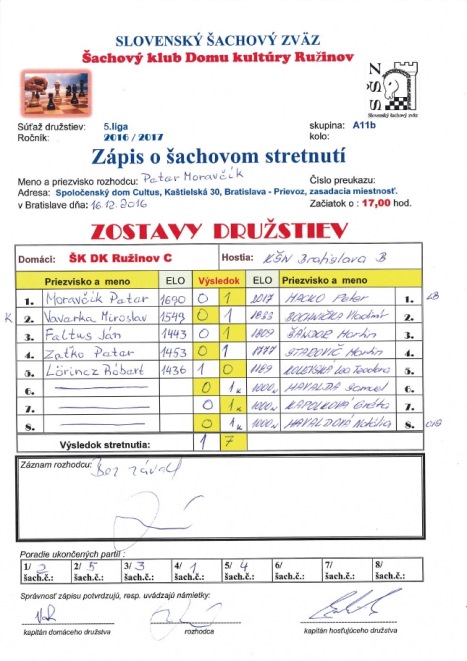 SLOVENSKÝ ŠACHOVÝ ZVÄZ
Šachový klub Domu kultúry Ružinov
SŠZ
Slovenský šachový zväz
Súťaž družstiev: 5.liga skupina: A11b
Ročník: 2016 / 2017 kolo:
Zápis o šachovom stretnutí
Meno a priezvisko rozhodcu: Peter Moravčík Číslo preukazu:
Adresa: Spoločenský dom Cultus, Kaštielská 30, Bratislava - Prievoz, zasadacia miestnosť.
v Bratislave dňa: 16.12.2016 Začiatok o : 17,00 hod.
ZOSTAVY DRUŽSTIEV
Domáci: ŠK DK Ružinov C Hostia: KŠN Bratislava B
Priezvisko a meno ELO Výsledok ELO Priezvisko a meno
1. Moravčík Peter 1690 0 1 2017 MACKO Peter 1.
K 2. Vavarka Miroslav 1549 0 1 1833 Vladimír 2.
3. Faltus Ján 1443 0 1 1809 ŠÁNDOR Martin 3.
4. Zaťko Peter 1453 0 1 1777 Martin 4.
5. Lörincz Róbert 1436 1 0 Teodora 5.
6. 0 1k 1000 HAVALDA Samuel 6.
7. 0 1k 1000 KAPOLKOVÁ Gréta 7.
8. 0 1k 1000 HAVALDOVÁ Natália 8.
Výsledok stretnutia: 1 7
Záznam rozhodcu: Bez závad
Poradie ukončených partií :
1/ 2 2/ 5 3/ 3 4/ 1 5/ 4 6/ 7/ 8/
šach.č.: šach.č.: šach.č.: šach.č.: šach.č.: šach.č.: šach.č.: šach.č.:
Správnosť zápisu potvrdzujú, resp. uvádzajú námietky:
kapitán domáceho družstva rozhodca kapitán hosťujúceho družstva